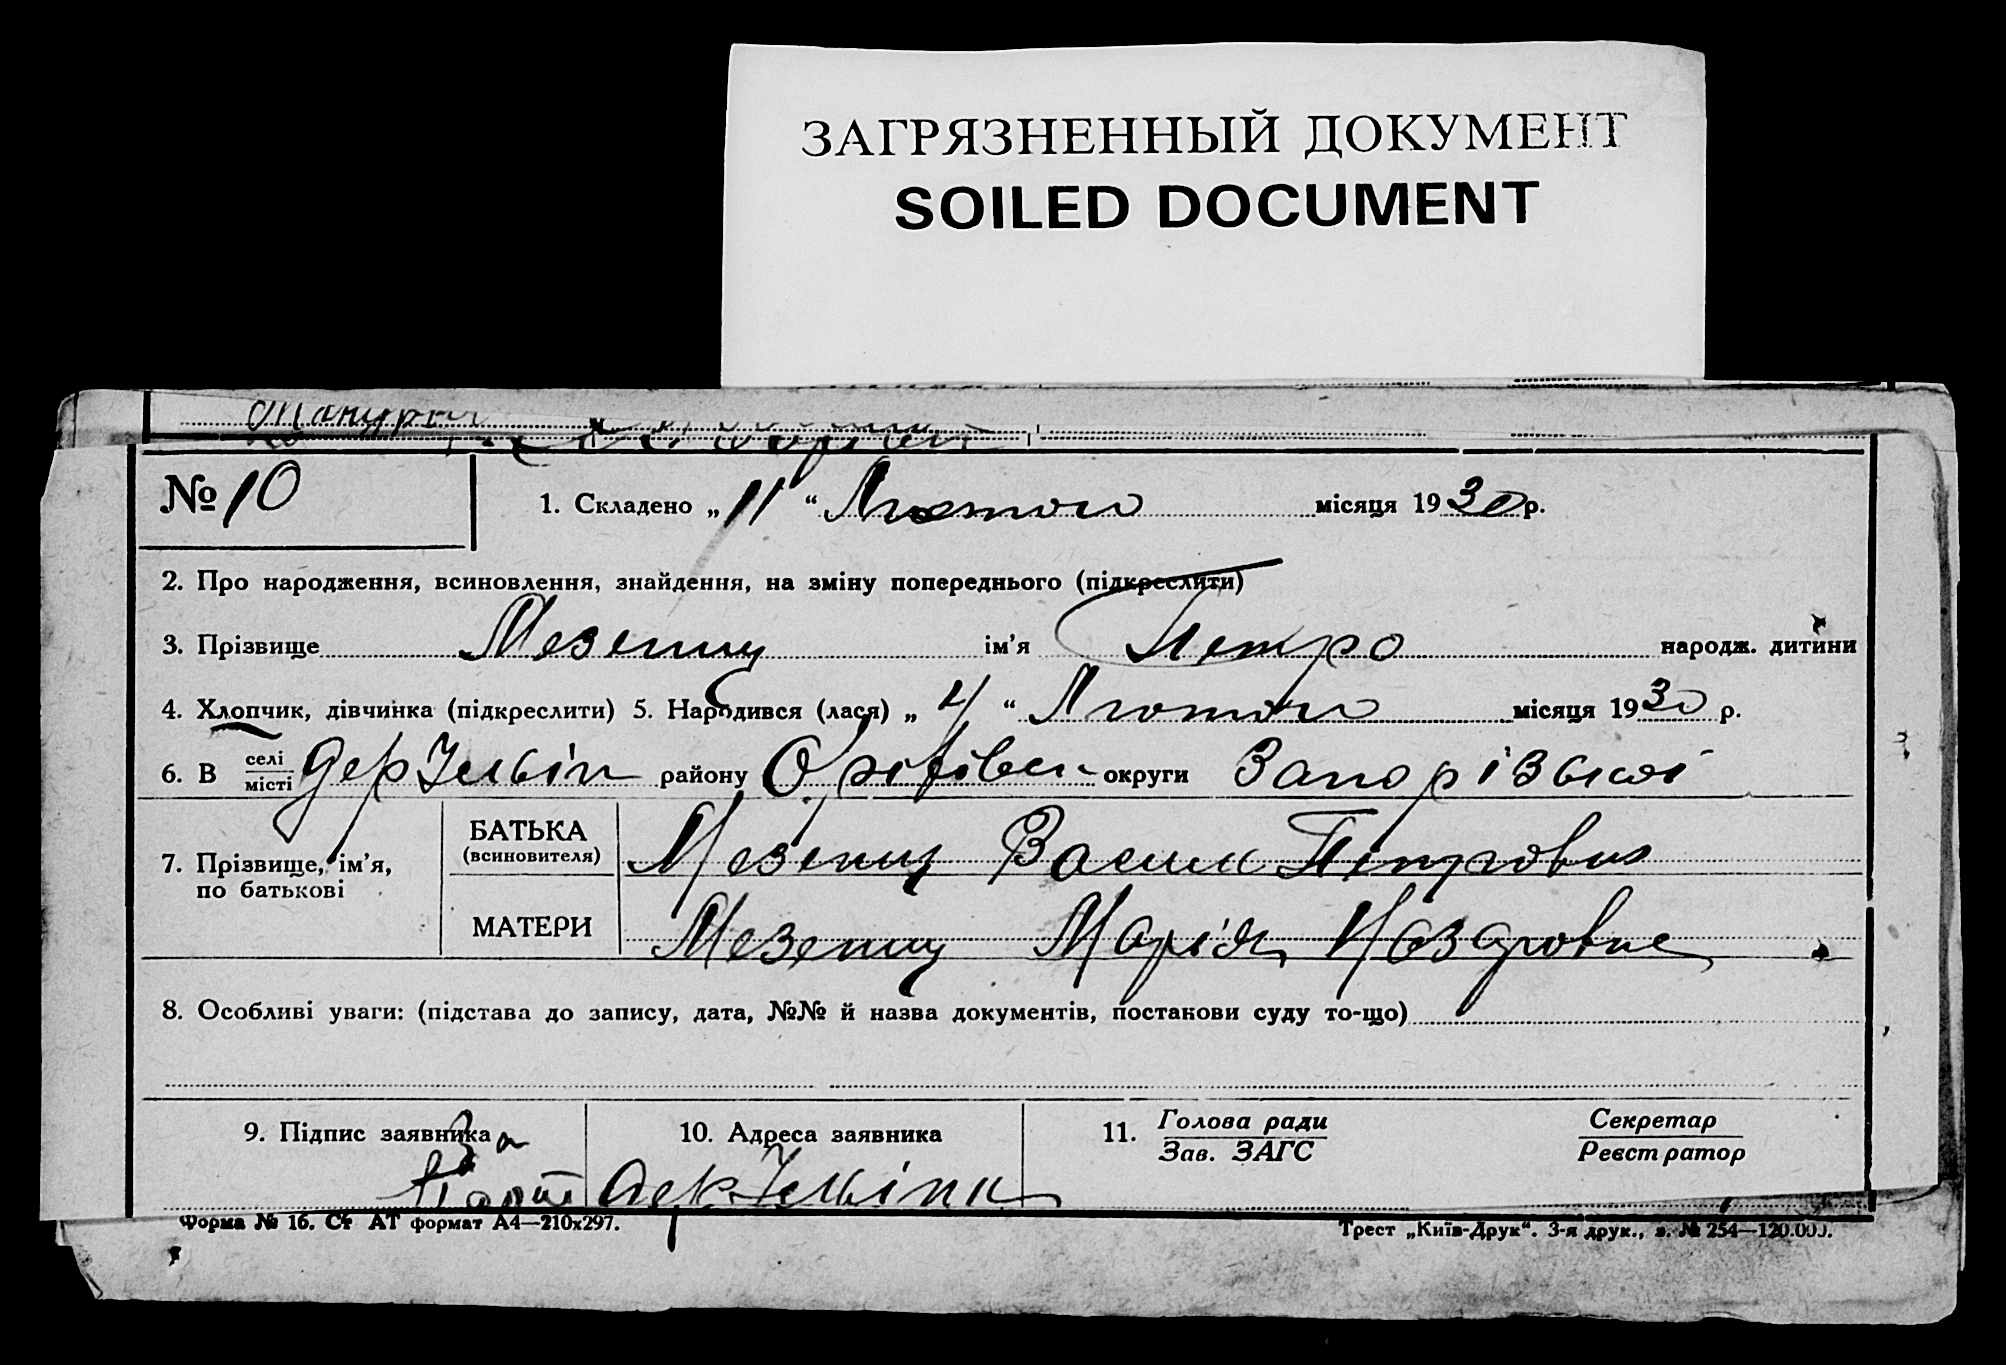 ЗАГРЯЗНЕННЫЙ ДОКУМЕНТ
SOILED DOCUMENT
№ 10
1. Складено „ 11 “ Лютого місяця 1930 р.
2. Про народження, всиновлення, знайдення, на зміну попереднього (підкреслити)
3. Прізвище Мезенц ім’я Петро народж. дитини
4. Хлопчик, дівчинка (підкреслити) 5. Народився (лася) „ 4 “ Лютого місяця 1930 р.
6. В селі місті району округи Запорізької
7. Прізвище, ім’я, по батькові
БАТЬКА (всиновителя) Мезенц Василь Петрович
МАТЕРИ Мезенц Марія
8. Особливі уваги: (підстава до запису, дата, №№ й назва документів, постанови суду то-що)
9. Підпис заявника 10. Адреса заявника 11. Голова ради Зав. ЗАГС Секретар Реєстратор
За
Форма № 16. Ст АТ формат А4—210х297. Трест „Київ-Друк“. 3-я друк., з. № 254—120.000.